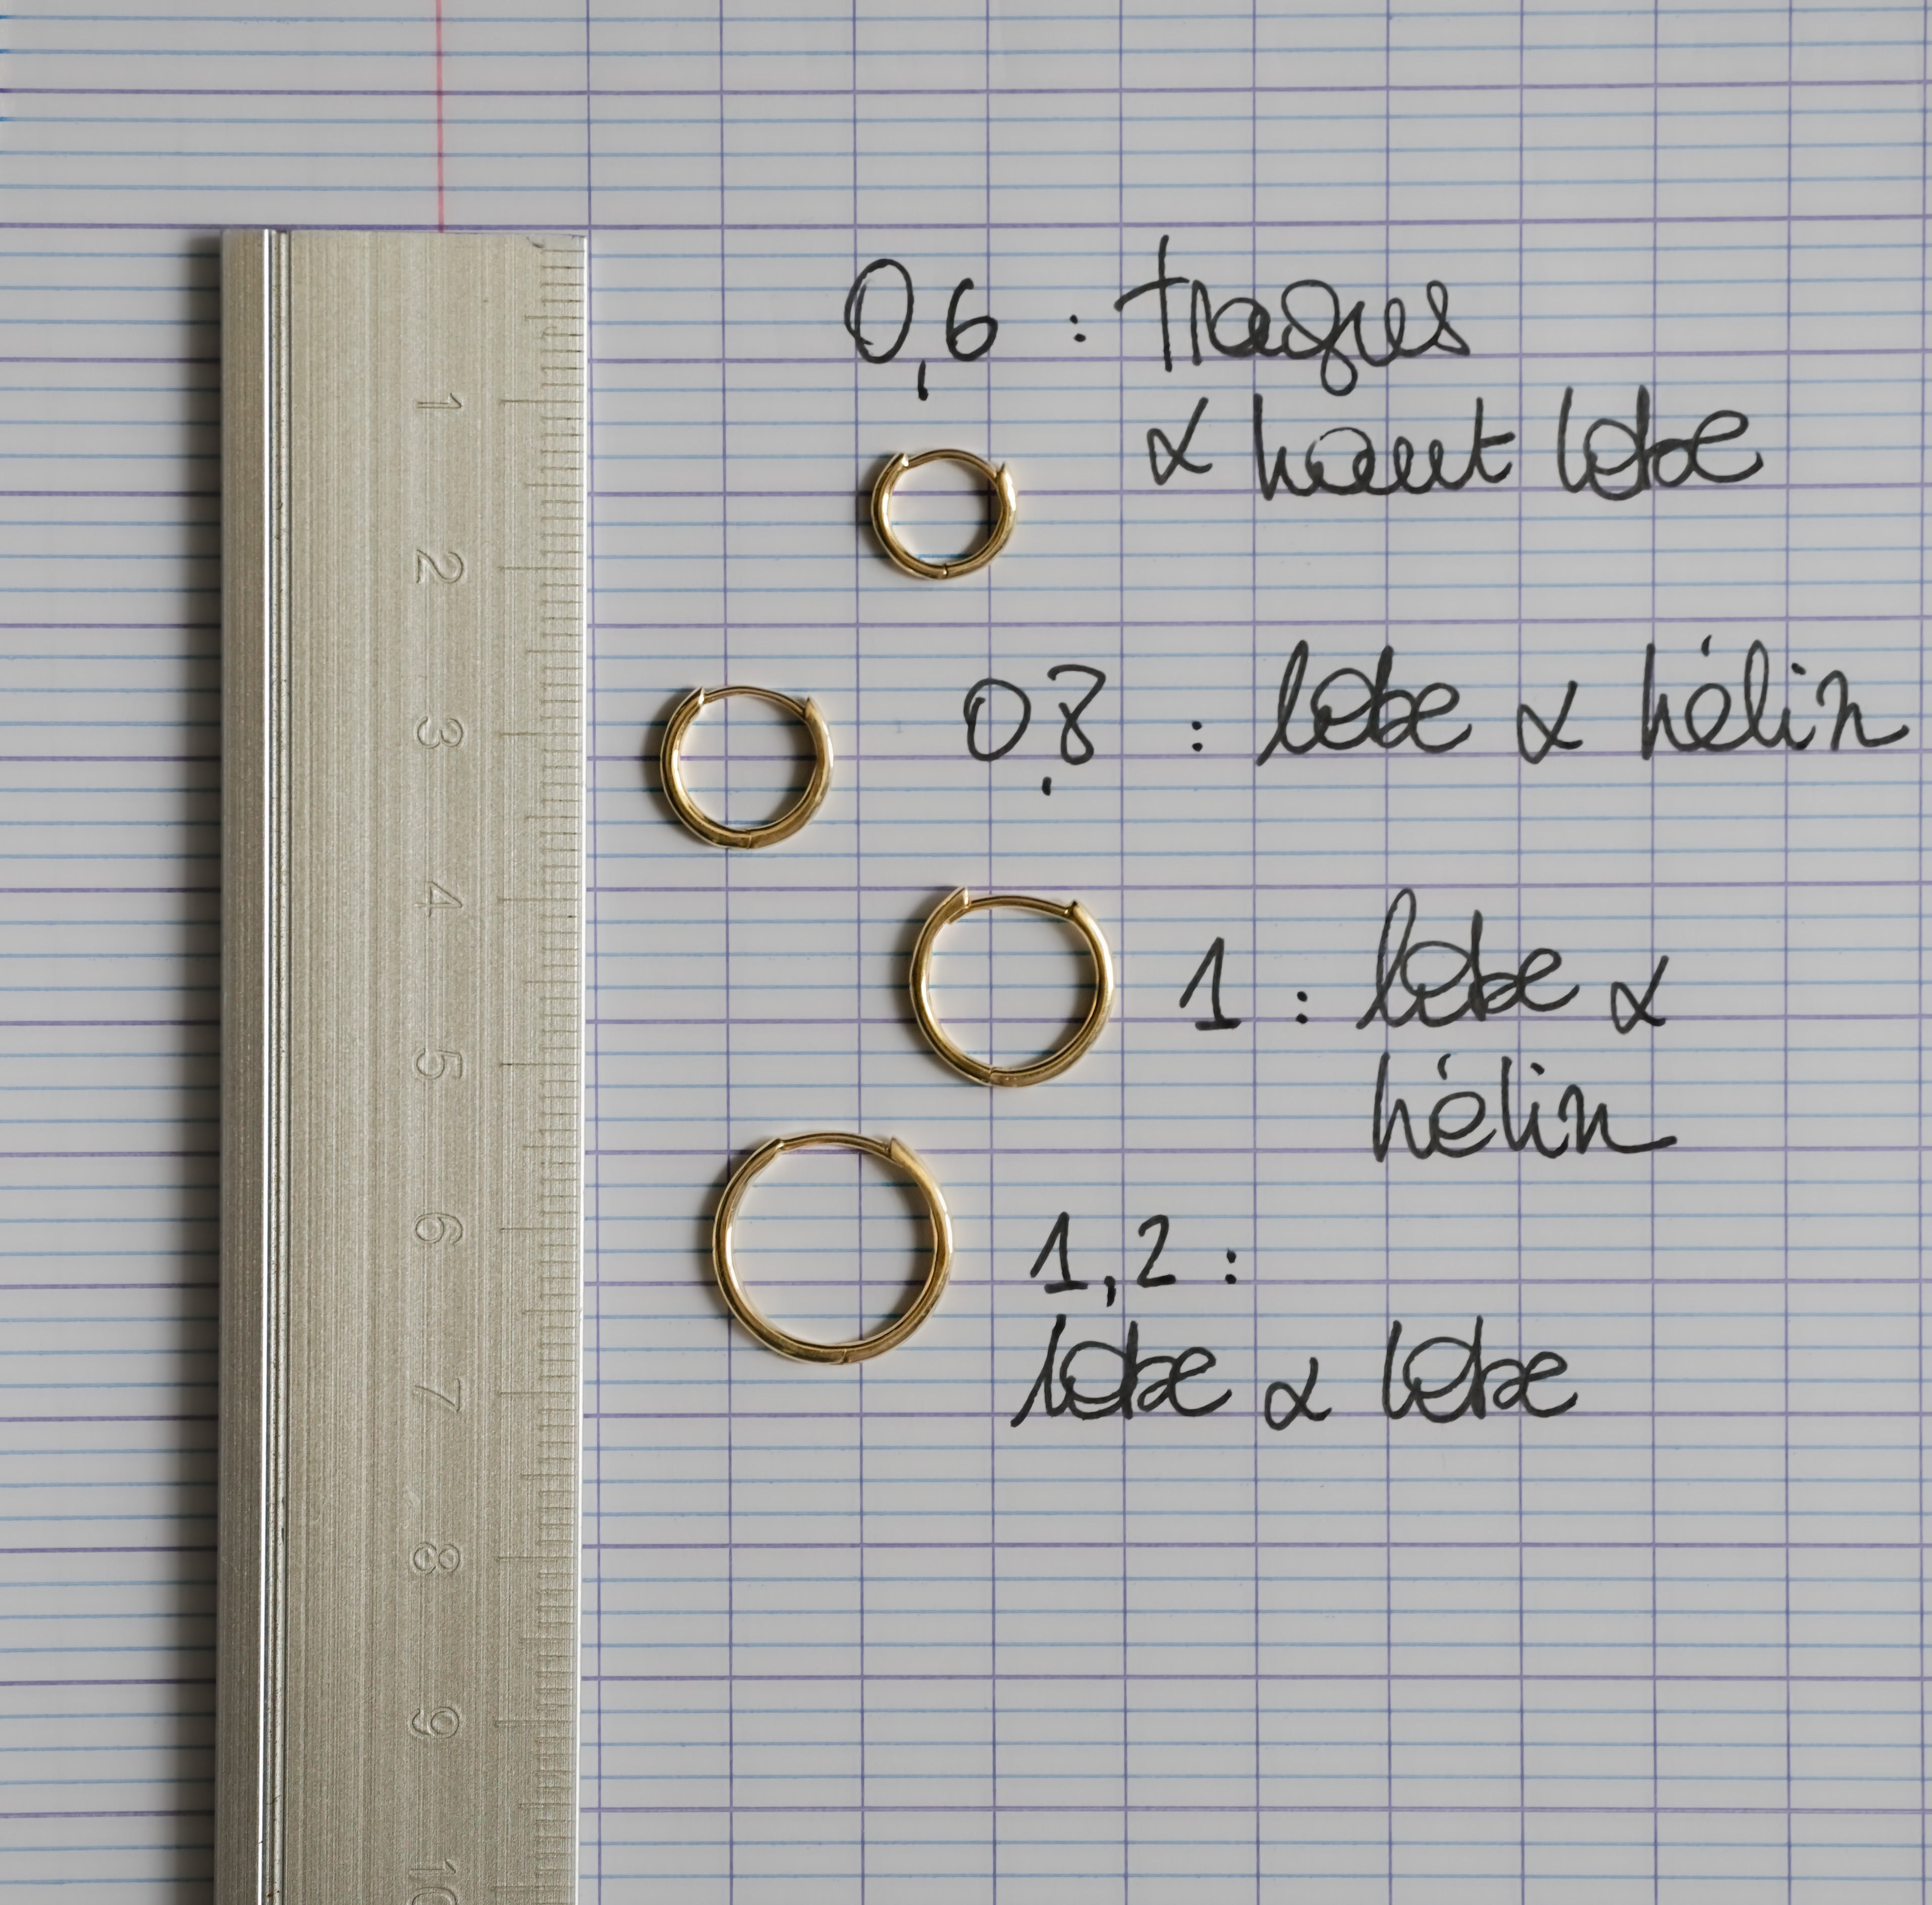 0,6 : tragus
& haut lobe
0,8 : lobe & hélix
1 : lobe &
hélix
1,2 :
lobe & lobe
1
2
3
4
5
6
7
8
9
10